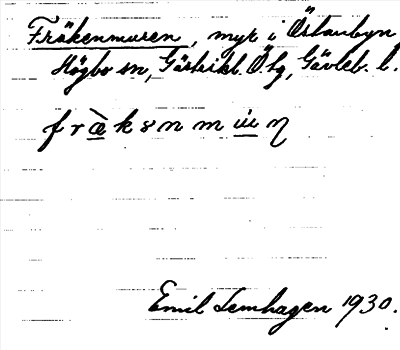 Fräkenmuren, myr i Östanbyn
Högbo sn, Gästrikl. Ö. hg, Gävleb. l.
fræ̀kənmui̇n
Emil Lemhagen 1930.